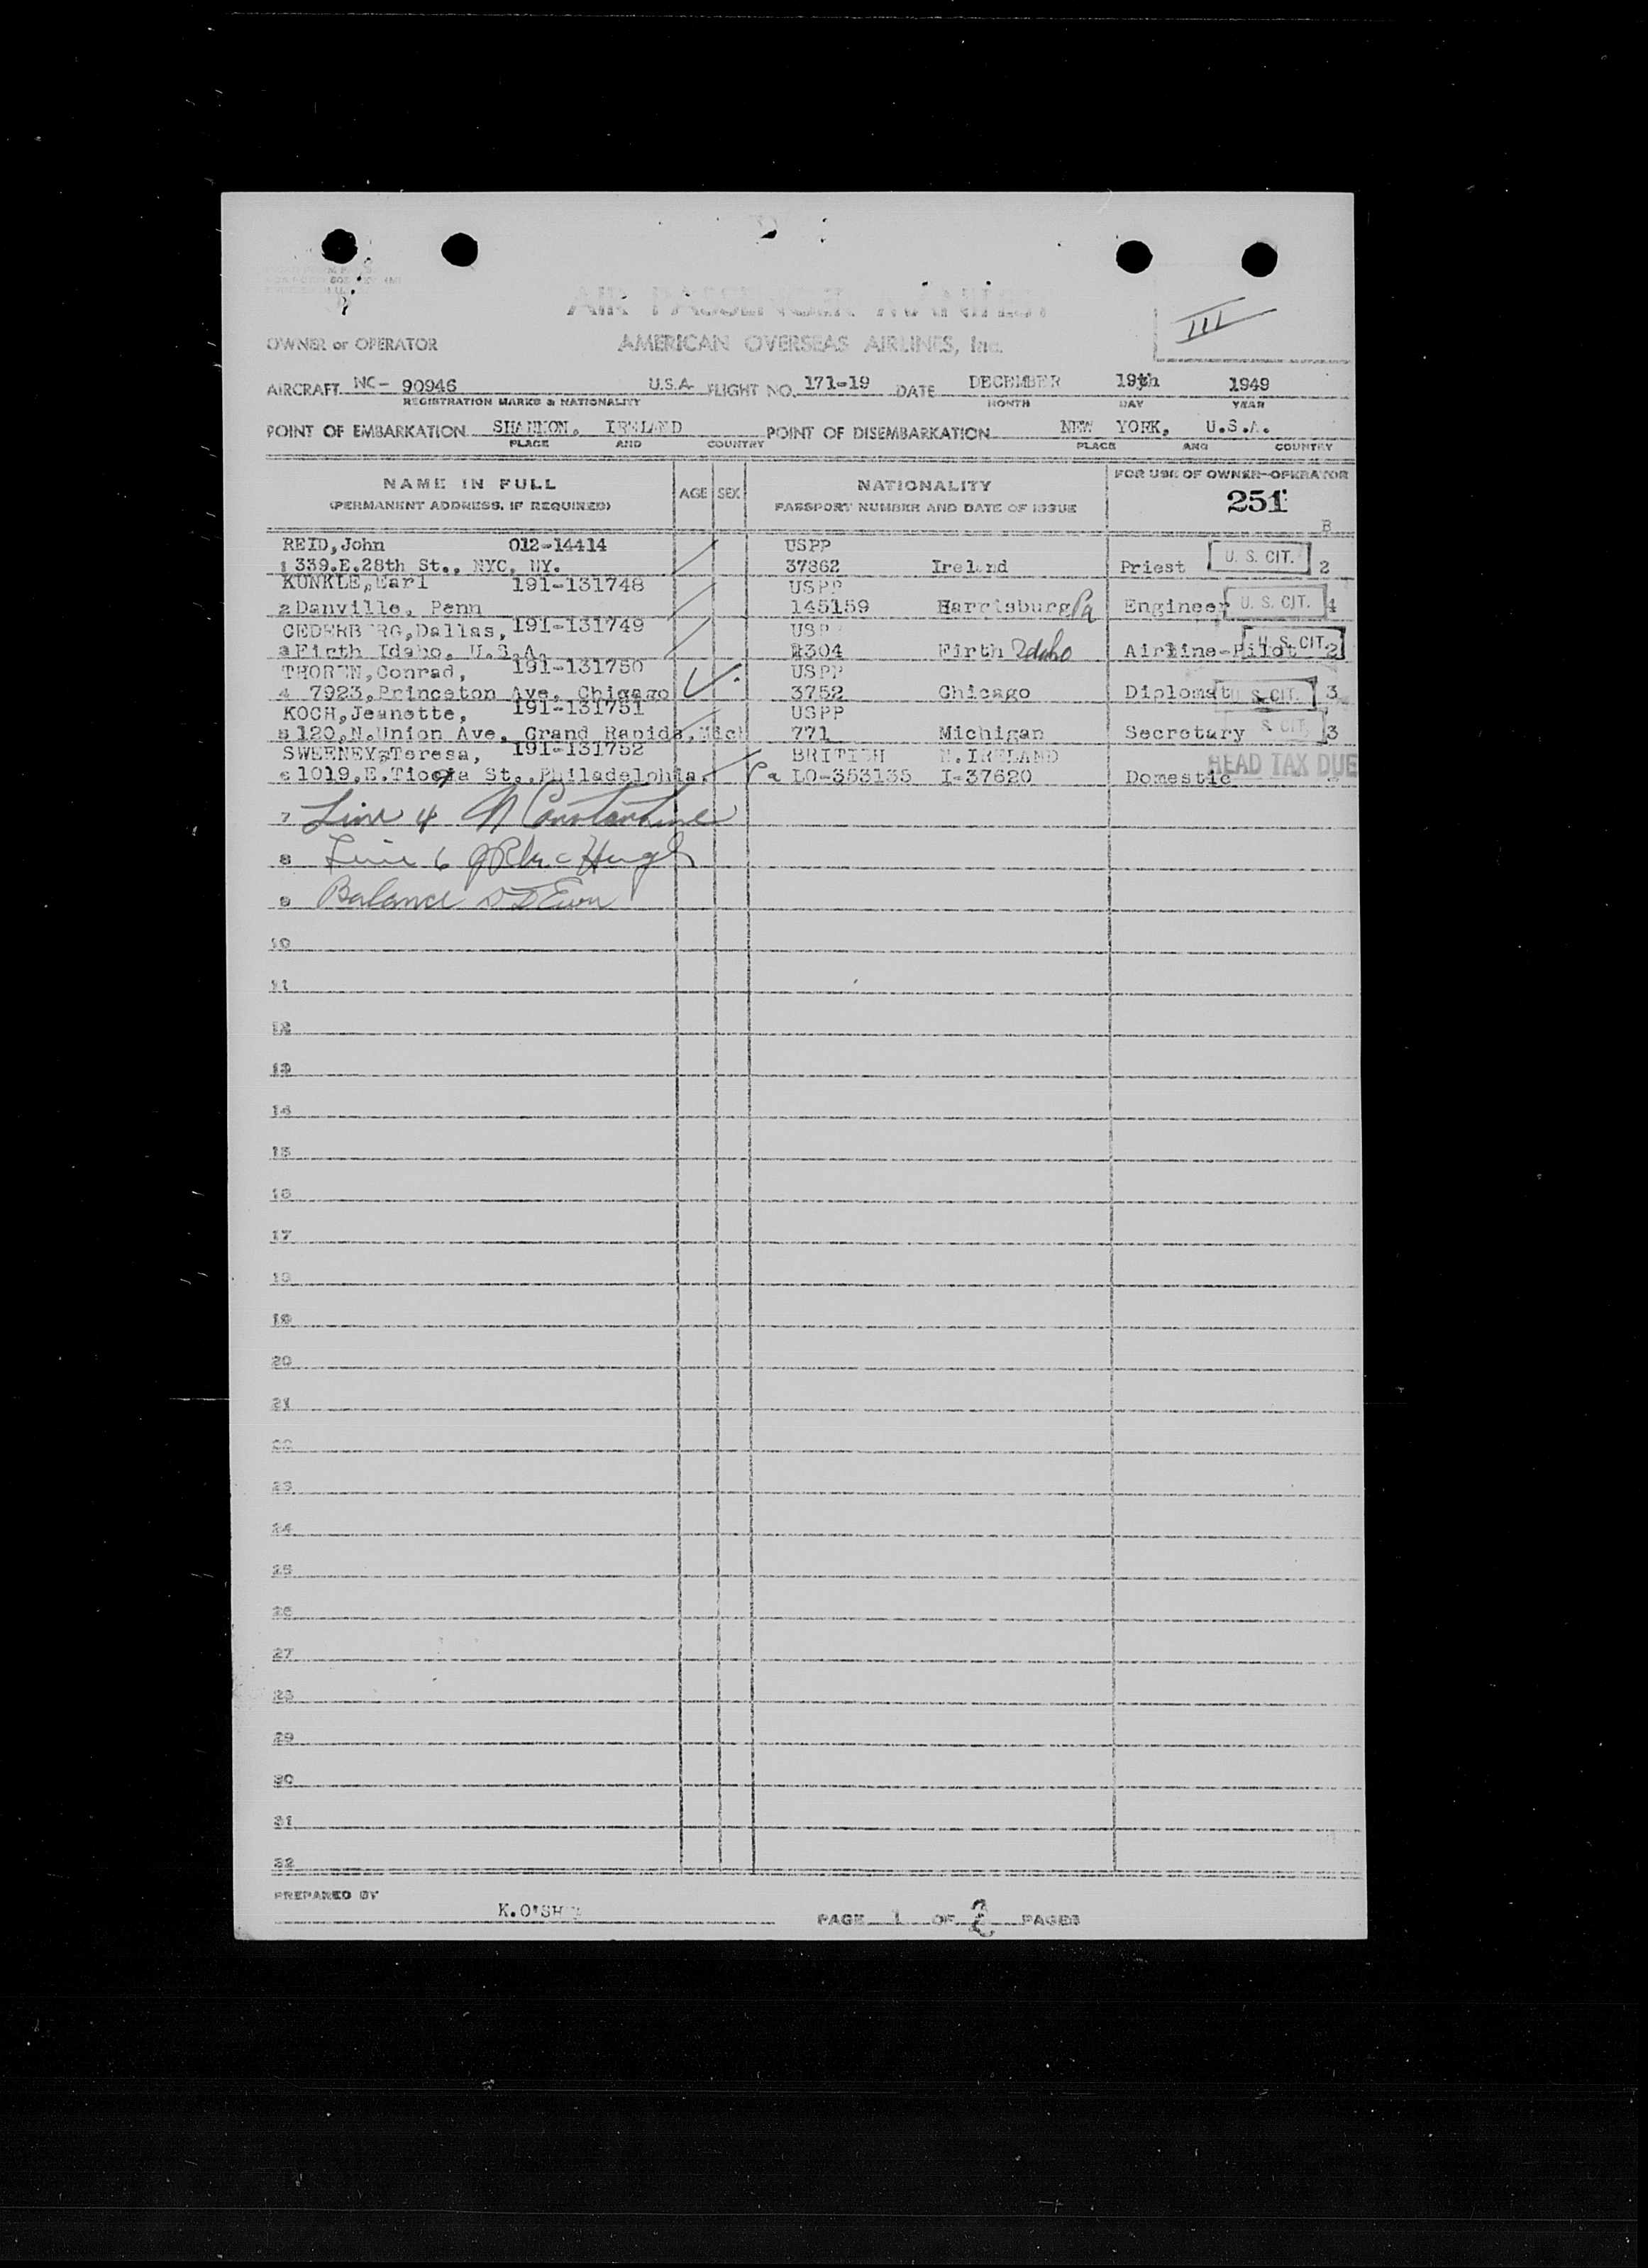 AIR PASSENGER MANIFEST
III
OWNER or OPERATOR AMERICAN OVERSEAS AIRLINES, Inc.
AIRCRAFT NC- 90946 U.S.A. FLIGHT NO. 171-19 DATE DECEMBER 19th 1949
REGISTRATION MARKS & NATIONALITY MONTH DAY YEAR
POINT OF EMBARKATION SHANNON, IRELAND POINT OF DISEMBARKATION NEW YORK, U.S.A.
PLACE AND COUNTRY PLACE AND COUNTRY
NAME IN FULL AGE SEX NATIONALITY FOR USE OF OWNER-OPERATOR
(PERMANENT ADDRESS, IF REQUIRED) PASSPORT NUMBER AND DATE OF ISSUE 251
B
REID,John 012-14414 USPP
1 339.E.28th St., NYC, NY. 37862 Ireland Priest U. S. CIT. 2
KUNKLE,Earl 191-131748 USPP
2 Danville, Penn 145159 Harrisburg Pa Engineer U. S. CIT. 4
CEDERBERG,Dallas, 191-131749 USPP
3 Firth Idaho, U.S.A. 2304 Firth Idaho Airline-Pilot U. S. CIT. 2
THOREN,Conrad, 191-131750 USPP
4 7923,Princeton Ave, Chigago 3752 Chicago Diplomat U. S. CIT. 3
KOCH,Jeanette, 191-131751 USPP
5 120,N.Union Ave, Grand Rapids,Mich 771 Michigan Secretary S. CIT. 3
SWEENEY,Teresa, 191-131752 BRITISH N.IRELAND HEAD TAX DUE
6 1019,E.Tioga St.,Philadelphia, Pa LO-353135 I-37620 Domestic
7 Line 4 N Constantine
8 Line 6 Hugh
9 Balance
10
11
12
13
14
15
16
17
18
19
20
21
22
23
24
25
26
27
28
29
30
31
32
PREPARED BY
K.O'SH PAGE 1 OF 2 PAGES